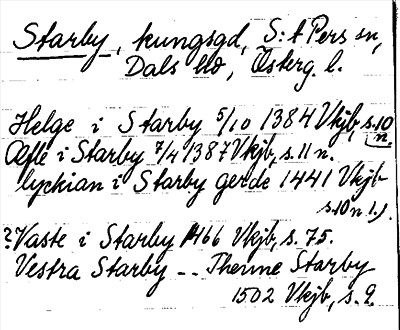 Starby, kungsgd, S:t Pers sn,
Dals hd, Österg. l.
Helge i Starby 5/10 1384 Vkjb, s.10 n.
Ælfle i Starby 7/4 1387 Vkjb, s.11 n.
lyckian i Starby gerde 1441 Vkjb
s.10 n.1.)
?Vaste i Starby 1466 Vkjb, s. 75.
Vestra Starby -- Thenne Starby
1502 Vkjb, s. 9.